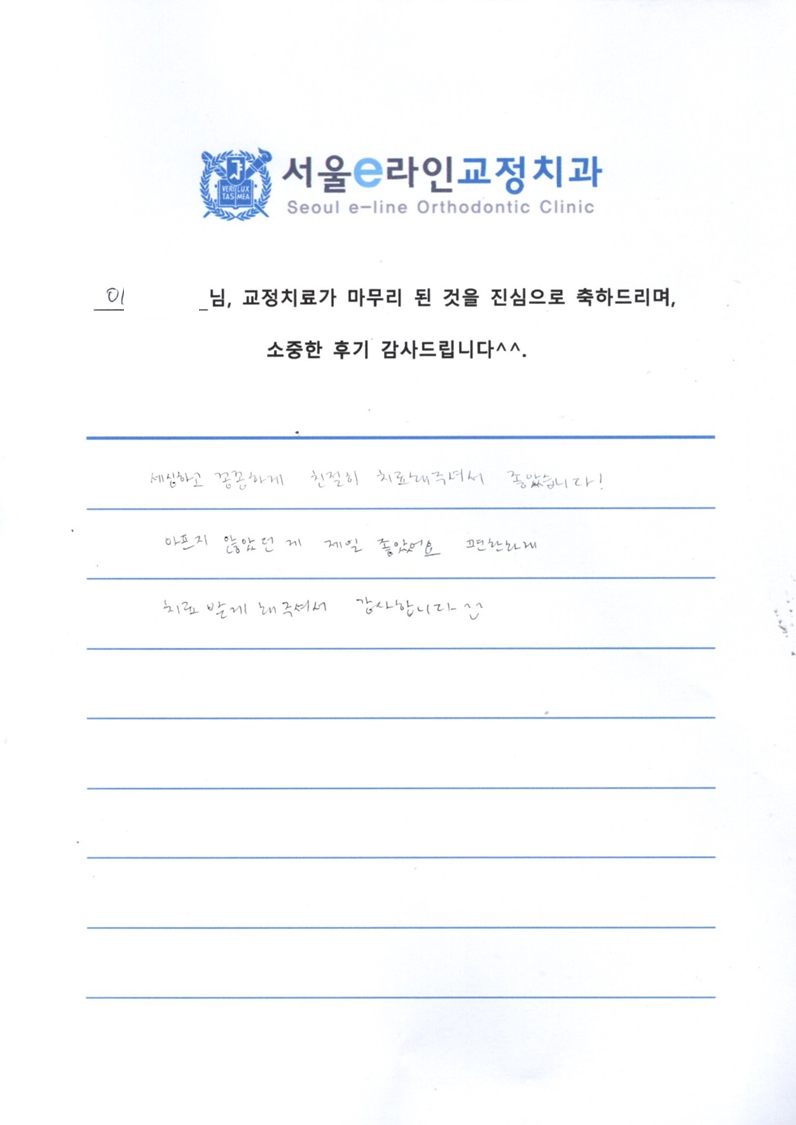 VERI LUX
TAS MEA
서울e라인교정치과
Seoul e-line Orthodontic Clinic
이 님, 교정치료가 마무리 된 것을 진심으로 축하드리며,
소중한 후기 감사드립니다^^.
세심하고 꼼꼼하게 친절히 치료해주셔서 좋았습니다!
아프지 않았던 게 제일 좋았어요 편안하게
치료 받게 해주셔서 감사합니다^^